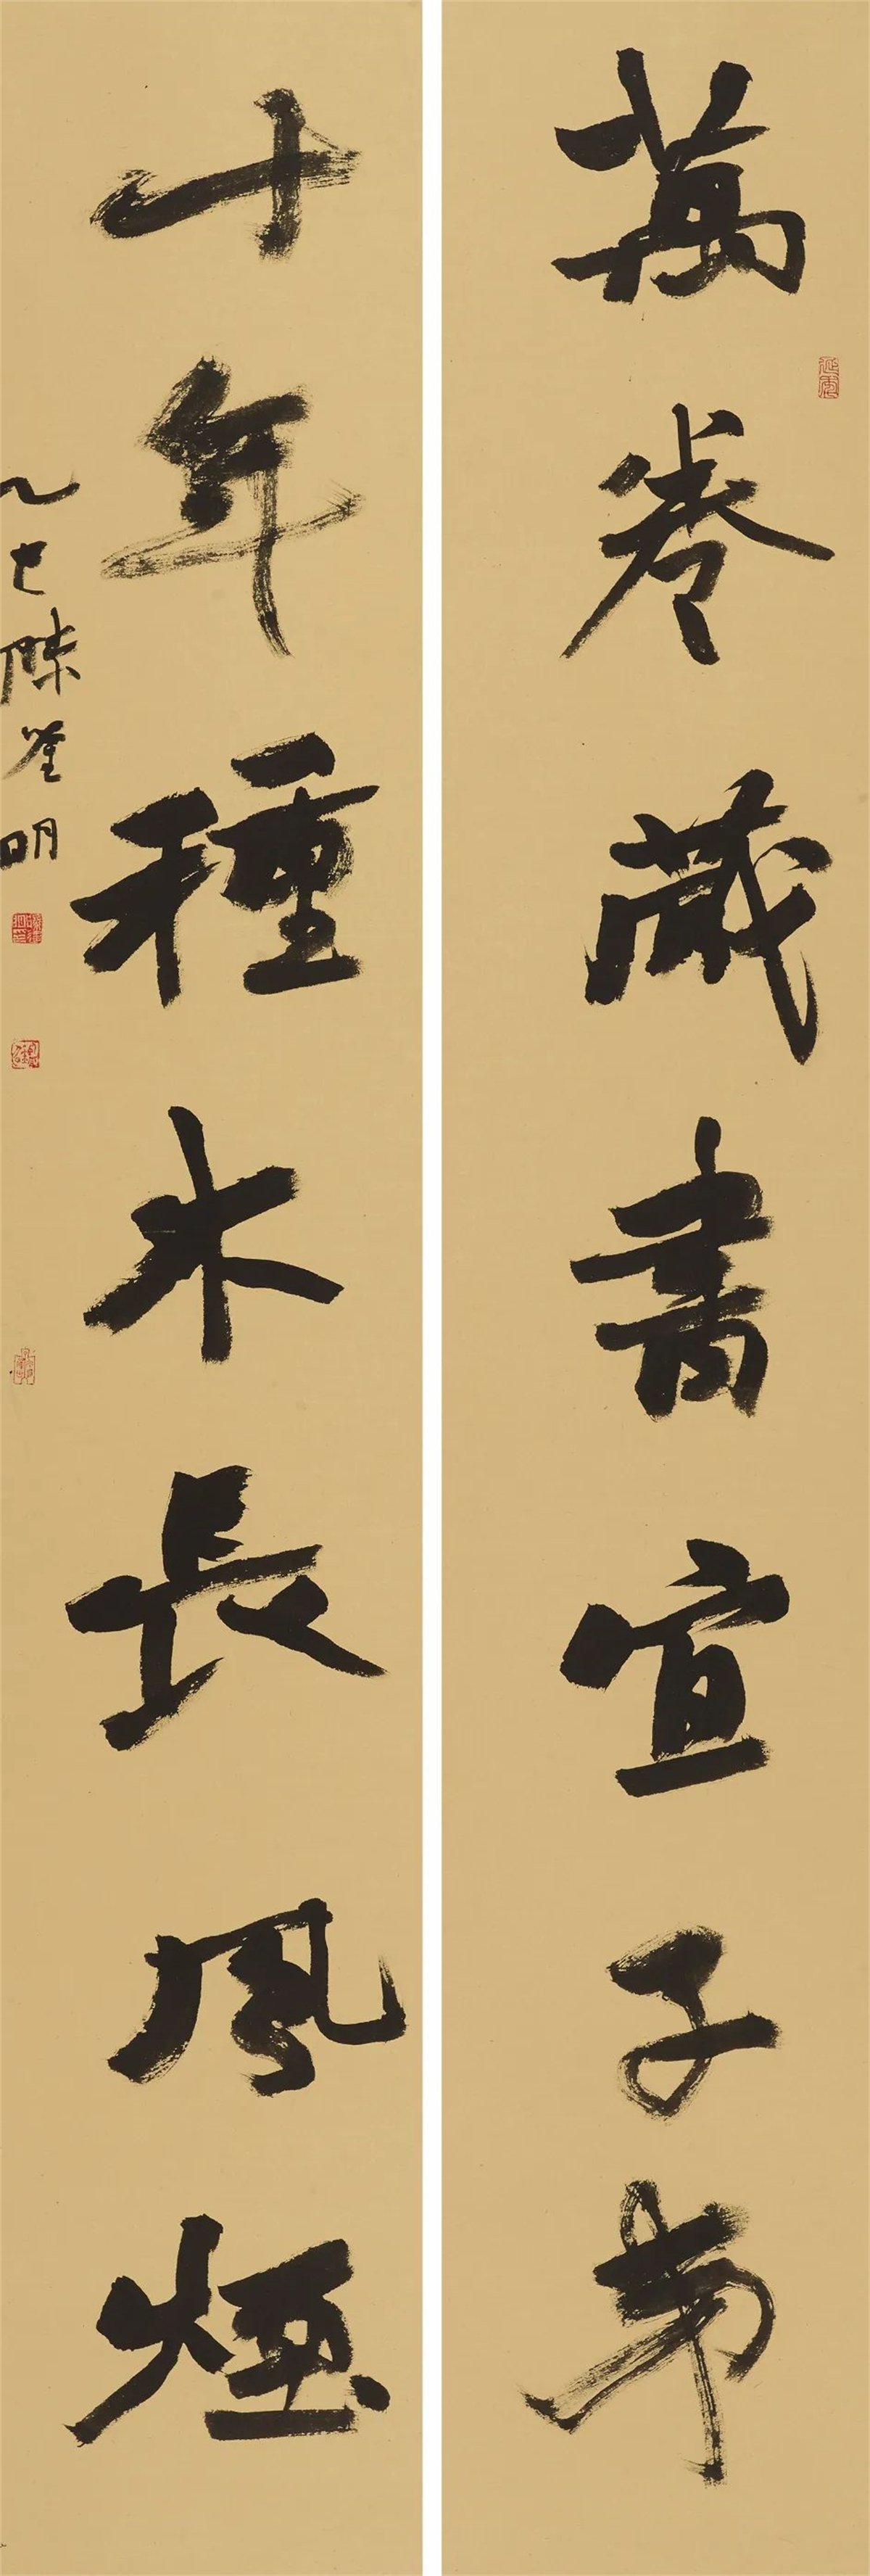 萬卷藏書宜子弟
十年種木長風煙
乙巳陳奎明